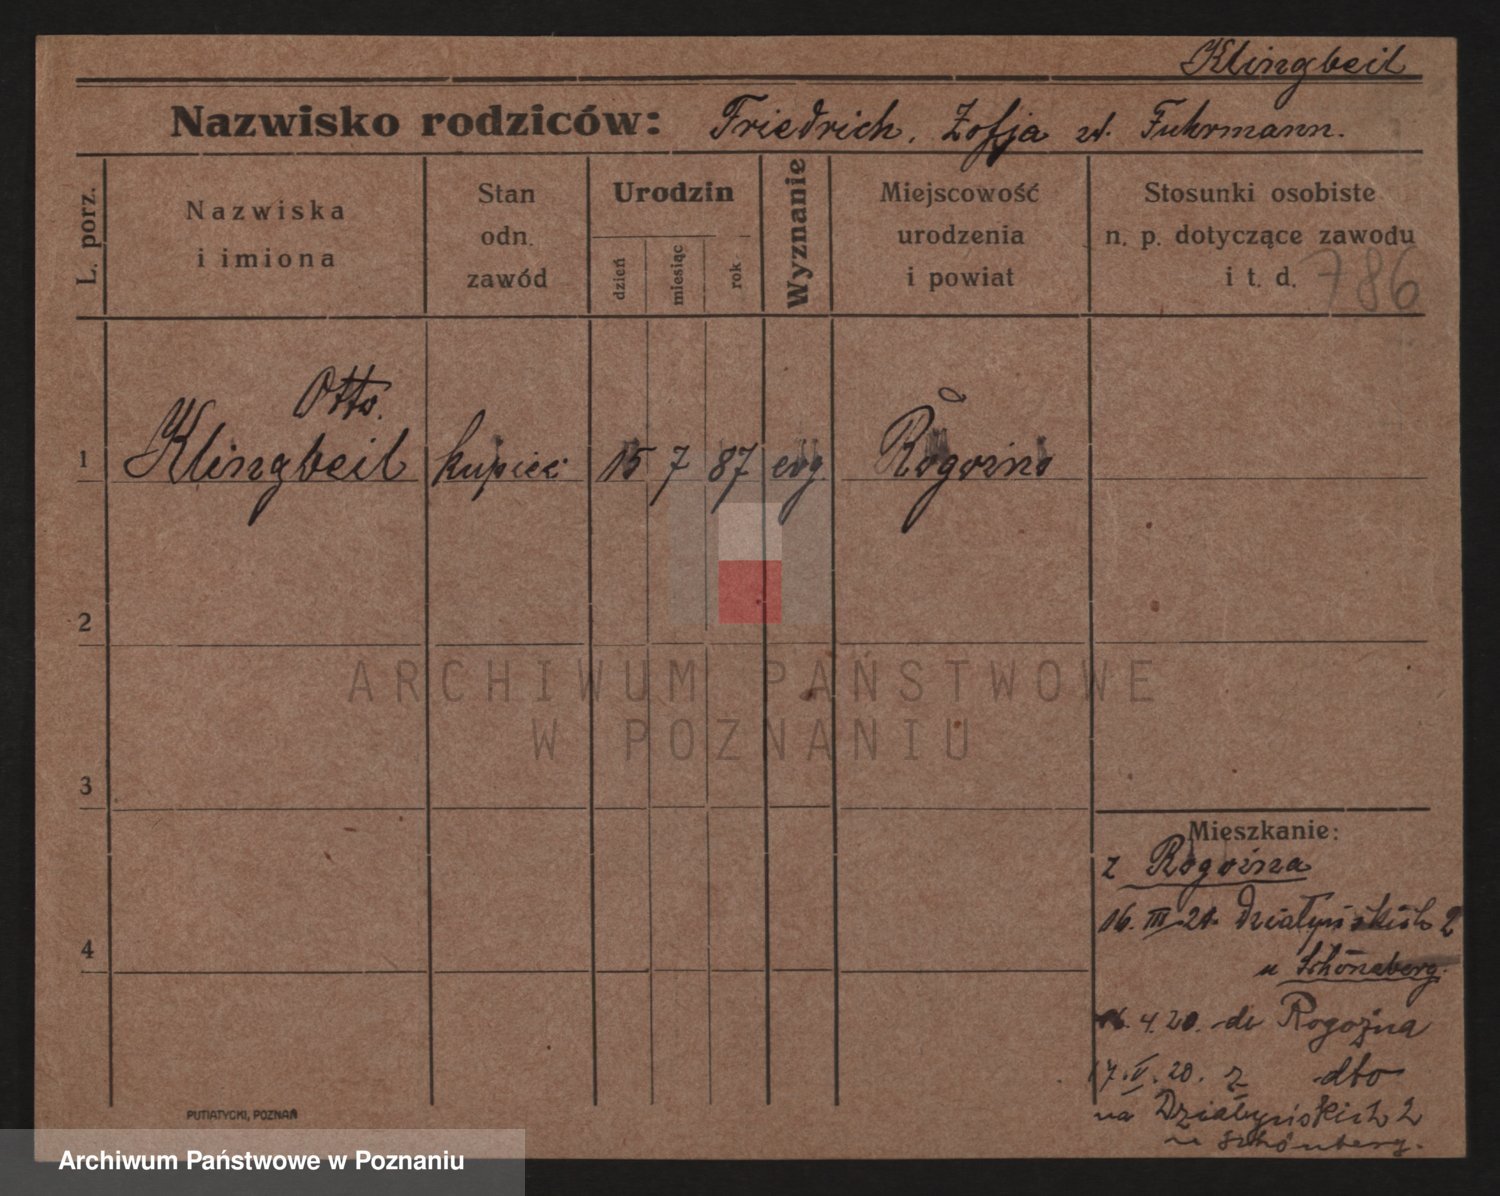 Klingbeil
Nazwisko rodziców: Friedrich, Zofja zd. Fuhrmann.
L. porz.
Nazwiska
i imiona
Stan
odn.
zawód
Urodzin
dzień
miesiąc
rok
Wyznanie
Miejscowość
urodzenia
i powiat
Stosunki osobiste
n. p. dotyczące zawodu
i t. d.
786
Otto.
1 Klingbeil kupiec 15 7 87 evg Rogoźno
2
3
4
ARCHIWUM PAŃSTWOWE
W POZNANIU
Mieszkanie:
z Rogoźna
16. III. Działyńskich 2
u Schönaberg.
16. 4. 20. do Rogoźna
17. V. 20. z dto
na Działyńskich 2
u Schönberg.
PUTIATYCKI, POZNAŃ
Archiwum Państwowe w Poznaniu